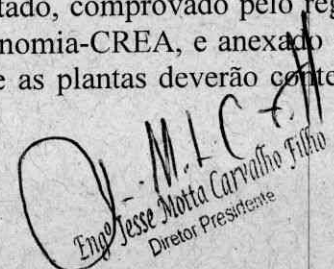 tado, comprovado pelo reg
nomia-CREA, e anexado
e as plantas deverão conte
Engº Jesse Motta Carvalho Filho
Diretor Presidente